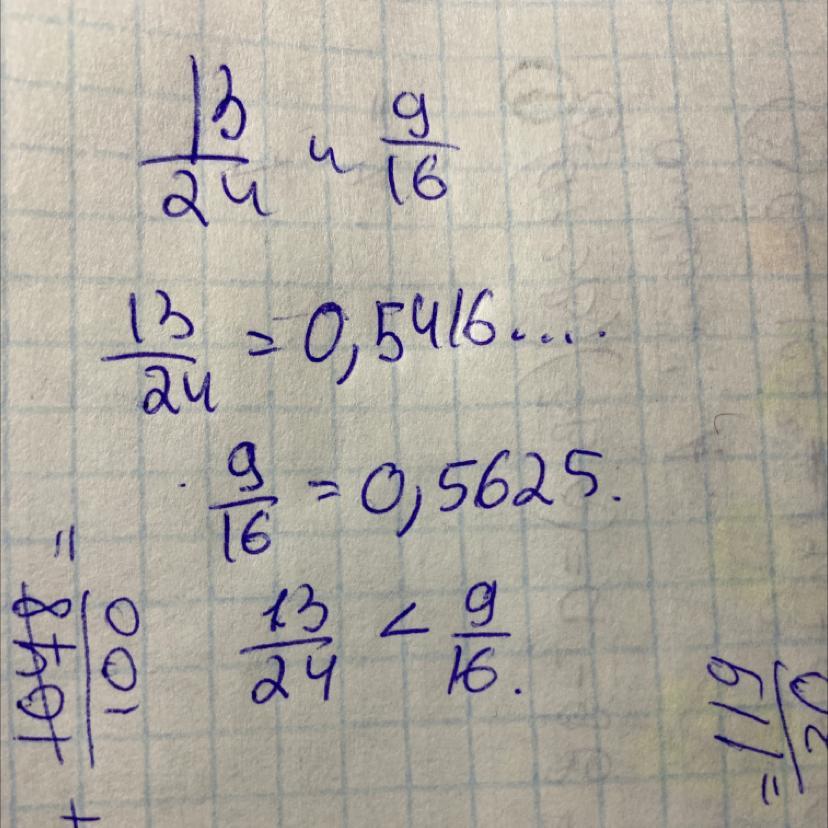 13/24 и 9/16
13/24 = 0,5416....
9/16 = 0,5625.
13/24 < 9/16.
=
100
+
= 119/20